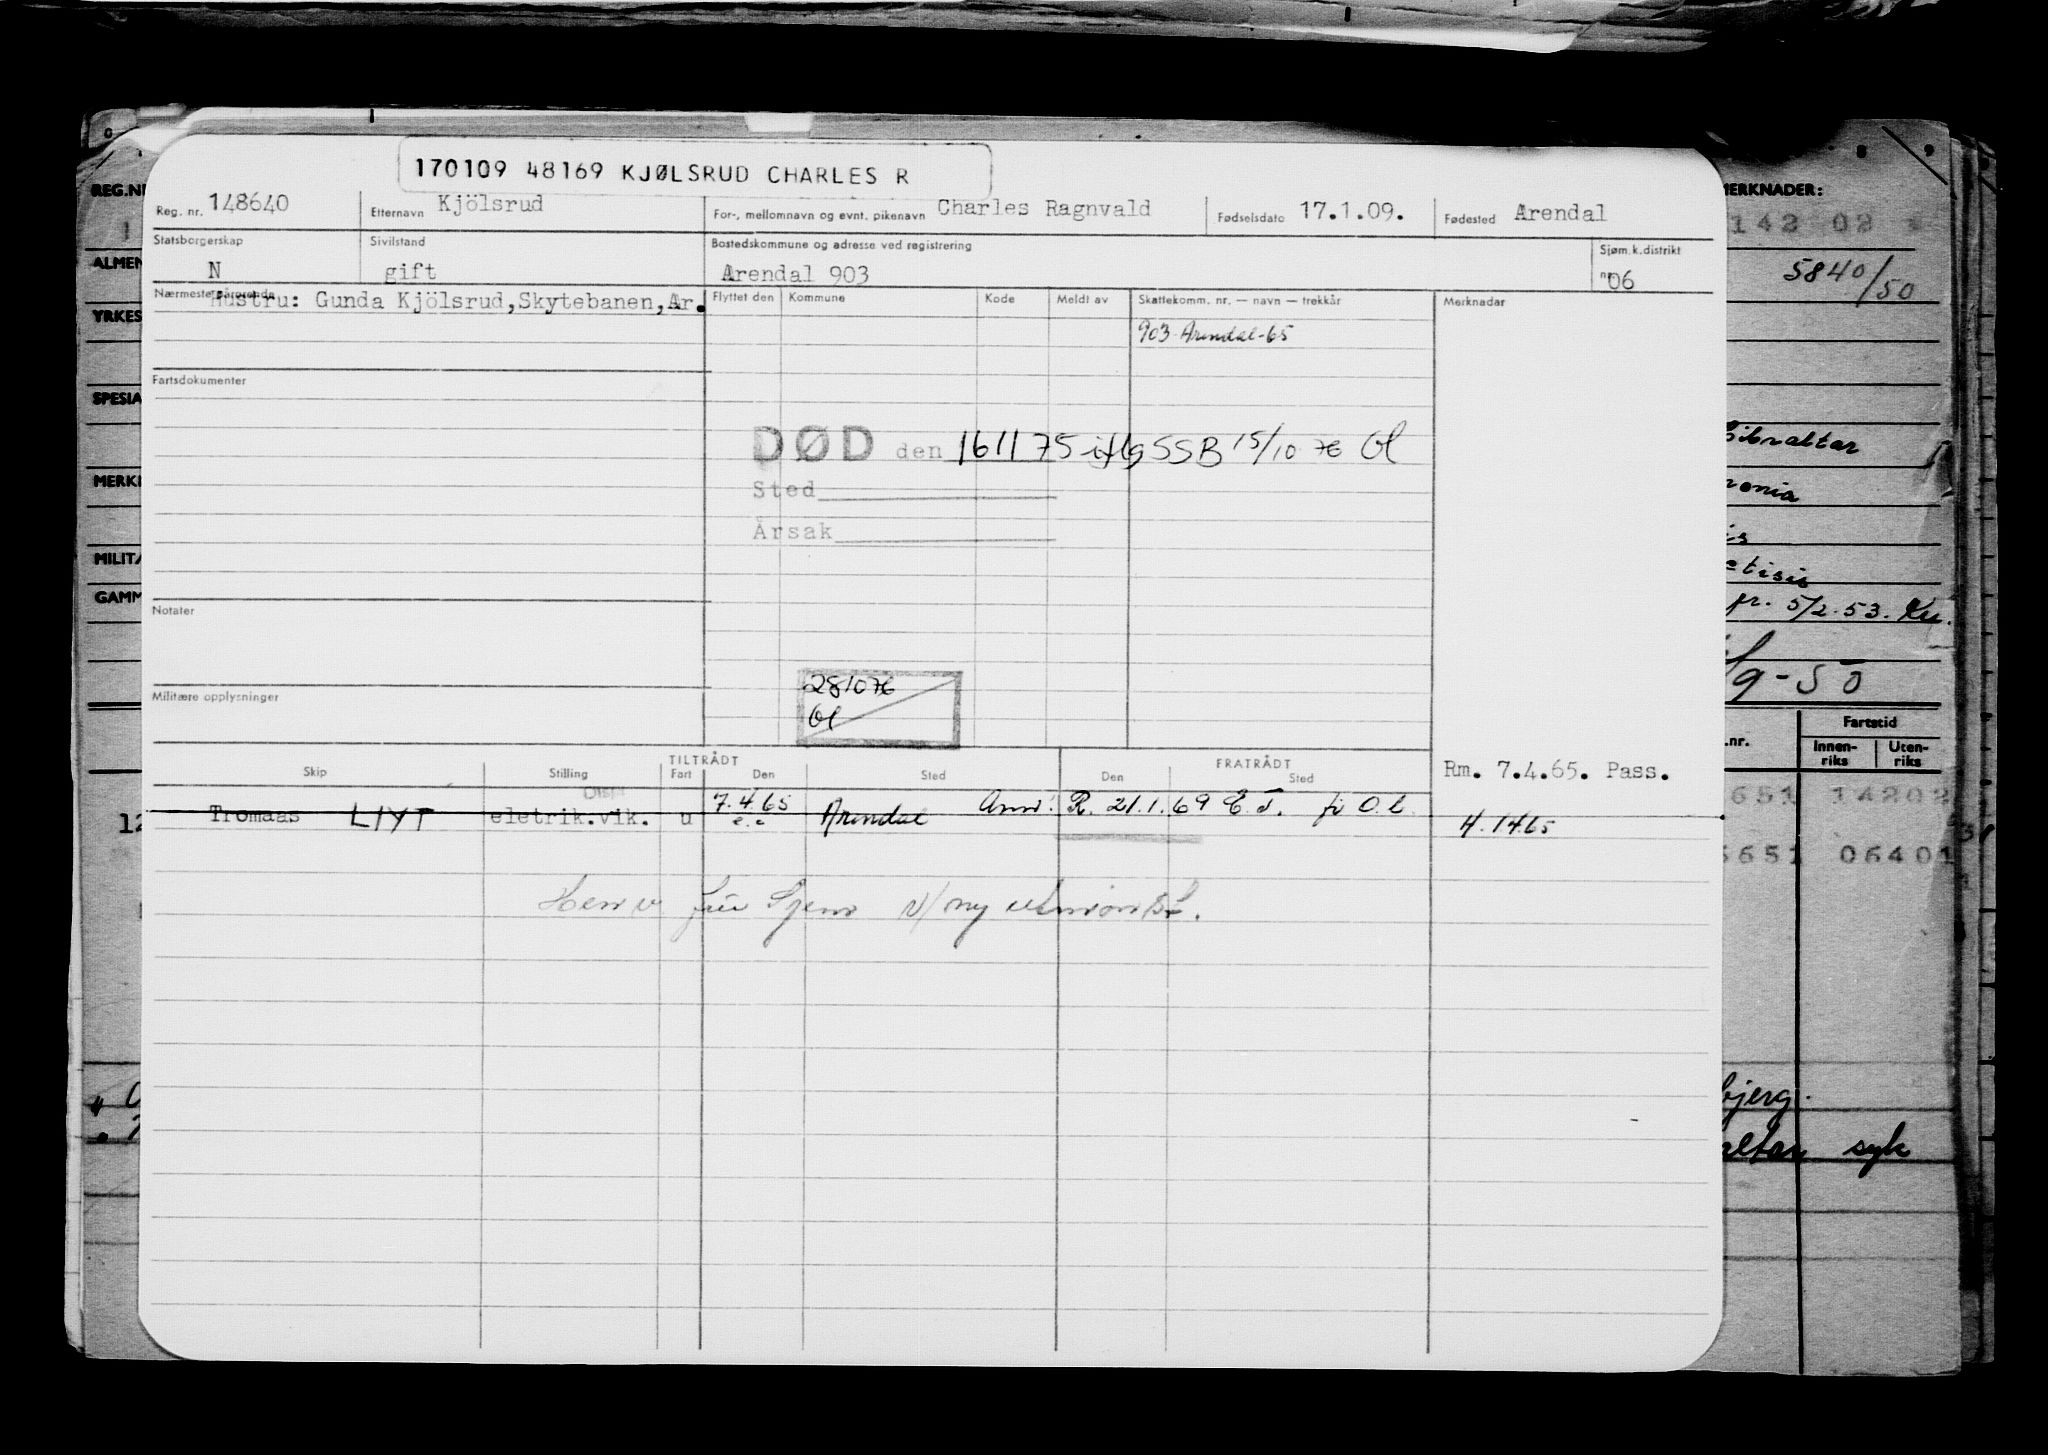 170109 48169 KJØLSRUD CHARLES R
Reg. nr. 148640 Etternavn Kjölsrud For-, mellomnavn og evnt. pikenavn Charles Ragnvald Fødselsdato 17.1.09. Fødested Arendal
Statsborgerskap Sivilstand Bostedskommune og adresse ved registrering Sjøm.k.distrikt
N gift Arendal 903 nr. 06
Nærmeste pårørende Hustru: Gunda Kjölsrud,Skytebanen,Ar. Flyttet den Kommune Kode Meldt av Skattekomm. nr. — navn — trekkår Merknader
903 Arendal-65
Fartsdokumenter
DØD den 161175 iflg SSB 15/10 76 Ol
Sted
Årsak
Notater
281076
Ol
Militære opplysninger
TILTRÅDT FRATRÅDT
Skip Stilling Fart Den Sted Den Sted
Rm. 7.4.65. Pass.
Tromaas LIYT eletrik.vik. u 7.4.65 Arendal R. 21.1.69 E.T. 4.1465
REG.NR
ALMEN
YRKES
SPESIA
MERK
MILIT
GAMM
12
MERKNADER:
142 02
5840/50
Gibraltar
ronia
is
etisis
fr. 5/2.53. Ku.
/9-50
.nr. Fartstid
Innen-riks Uten-riks
651 14202
5651 06401
bjerg.
altar syk